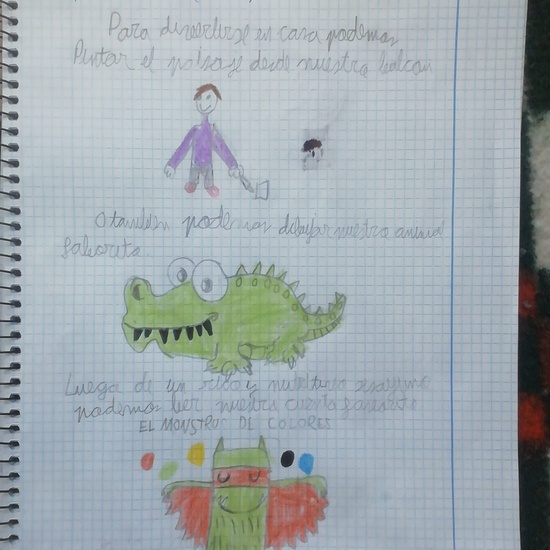 Para divertirse en casa podemos
Pintar el paisaje desde nuestro balcon
O tambien podemos dibujar nuestro animal
faborito.
Luego de un rico y nutritivo desayuno
podemos leer nuestro cuento faborito
EL MONSTRUO DE COLORES